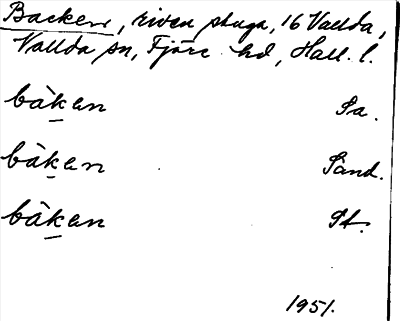 Backen, riven stuga, 16 Vallda,
Vallda sn, Fjäre hd, Hall. l.
bàken Sa.
bàken Sand.
bàken St.
1951.